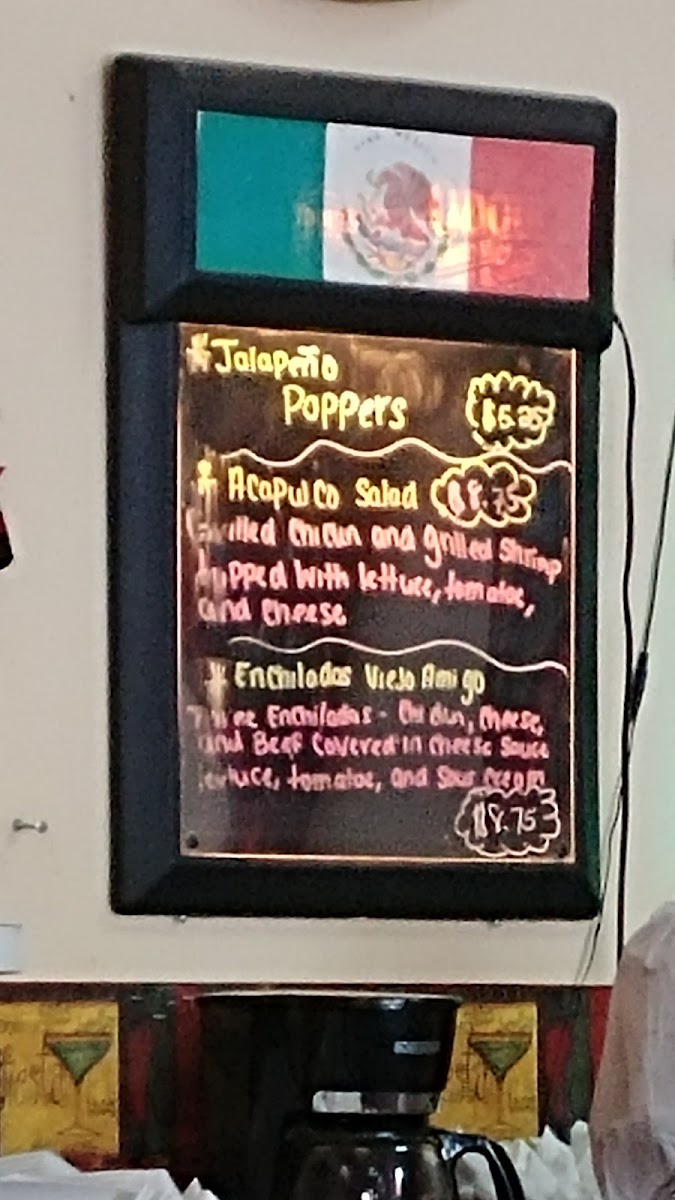 Jalapeño
Poppers
Acapulco Salad $8.75
Grilled Chicun and grilled Shrimp
topped with lettuce, tomatoe,
and cheese
Enchiladas Viejo Amigo
Three Enchiladas - Chicken, cheese,
and Beef Covered in cheese Sauce
lettuce, tomatoe, and Sour cream
$8.75